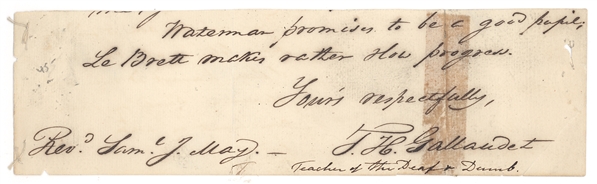 Waterman promises to be a good pupil;
Le Brett makes rather slow progress.
Yours respectfully,
Rev.d Sam.l J. May. — T. H. Gallaudet
Teacher of the Deaf & Dumb.